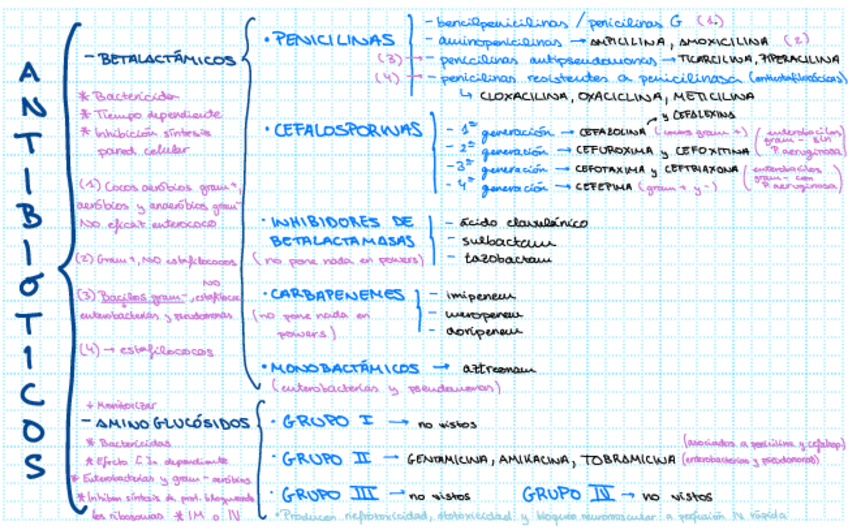 ANTIBIÓTICOS
- BETALACTÁMICOS
* Bactericida
* Tiempo dependiente
* Inhibición síntesis
pared celular
(1) Cocos aeróbios gram+,
aeróbios y anaeróbios gram-
NO eficaz enterococo
(2) Gram+, NO estafilococos
NO
(3) Bacilos gram-, estafilococo
enterobacterias y pseudomonas
(4) → estafilococos
• PENICILINAS
- bencilpenicilinas / penicilinas G (1)
- aminopenicilinas → AMPICILINA, AMOXICILINA (2)
(3) → - penicilinas antipseudomonas → TICARCILINA, PIPERACILINA
(4) → - penicilinas resistentes a penicilinasa (antiestafilocócicas)
↳ CLOXACILINA, OXACICLINA, METICILINA
• CEFALOSPORINAS
y CEFALEXINA
- 1ª generación → CEFAZOLINA (cocos gram +)
- 2ª generación → CEFUROXIMA y CEFOXITINA (enterobacilos gram- sin P. aeruginosa)
- 3ª generación → CEFOTAXIMA y CEFTRIAXONA (enterobacilos gram- con P. aeruginosa)
- 4ª generación → CEFEPIMA (gram + y -)
• INHIBIDORES DE
BETALACTAMASAS
(no pone nada en powers)
- ácido clavulánico
- sulbactam
- tazobactam
• CARBAPENEMES
(no pone nada en
powers)
- imipenem
- meropenem
- doripenem
• MONOBACTÁMICOS → aztreonam
(enterobacterias y pseudomonas)
+ Monitorizar
- AMINOGLUCÓSIDOS
* Bactericidas
* Efecto [ ] dependiente
* Enterobacterias y gram- aeróbios
* Inhiben síntesis de prot. bloqueando
los ribosomas * IM o IV
• GRUPO I → no vistos
• GRUPO II → GENTAMICINA, AMIKACINA, TOBRAMICINA (asociados a penicilina y cefalosp)
(enterobacterias y pseudomonas)
• GRUPO III → no vistos GRUPO IV → no vistos
* Producen nefrotoxicidad, ototoxicidad y bloqueo neuromuscular a perfusión IV rápida